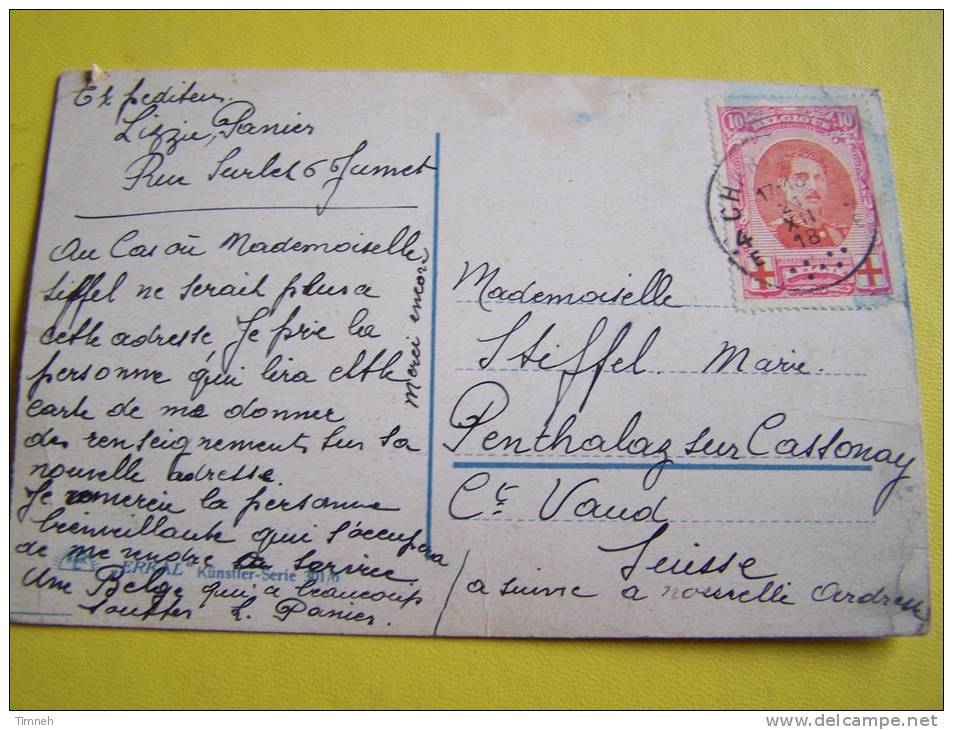 Expediteur.
Lizzie, Panier
Rue Surlet 6 Jumet
Au Cas où Mademoiselle
Stiffel ne serait plus a
cette adresse, Je prie la
personne qui lira cette
carte de me donner
des renseignements sur sa
nouvelle adresse.
Je remercie la personne
bienveillante qui s'occupera
de me rendre ce service.
Une Belge qui a beaucoup
souffer L. Panier.
Merci encore
"ERKAL" Künstler-Serie 301/6
10 BELGIQUE 10
CH
17-18
XII
18
4
E
Mademoiselle
Stiffel Marie.
Penthalaz sur Cassonay
Ct Vaud
Suisse
a suivre a nouvelle Ardresse
Timneh
www.delcampe.net